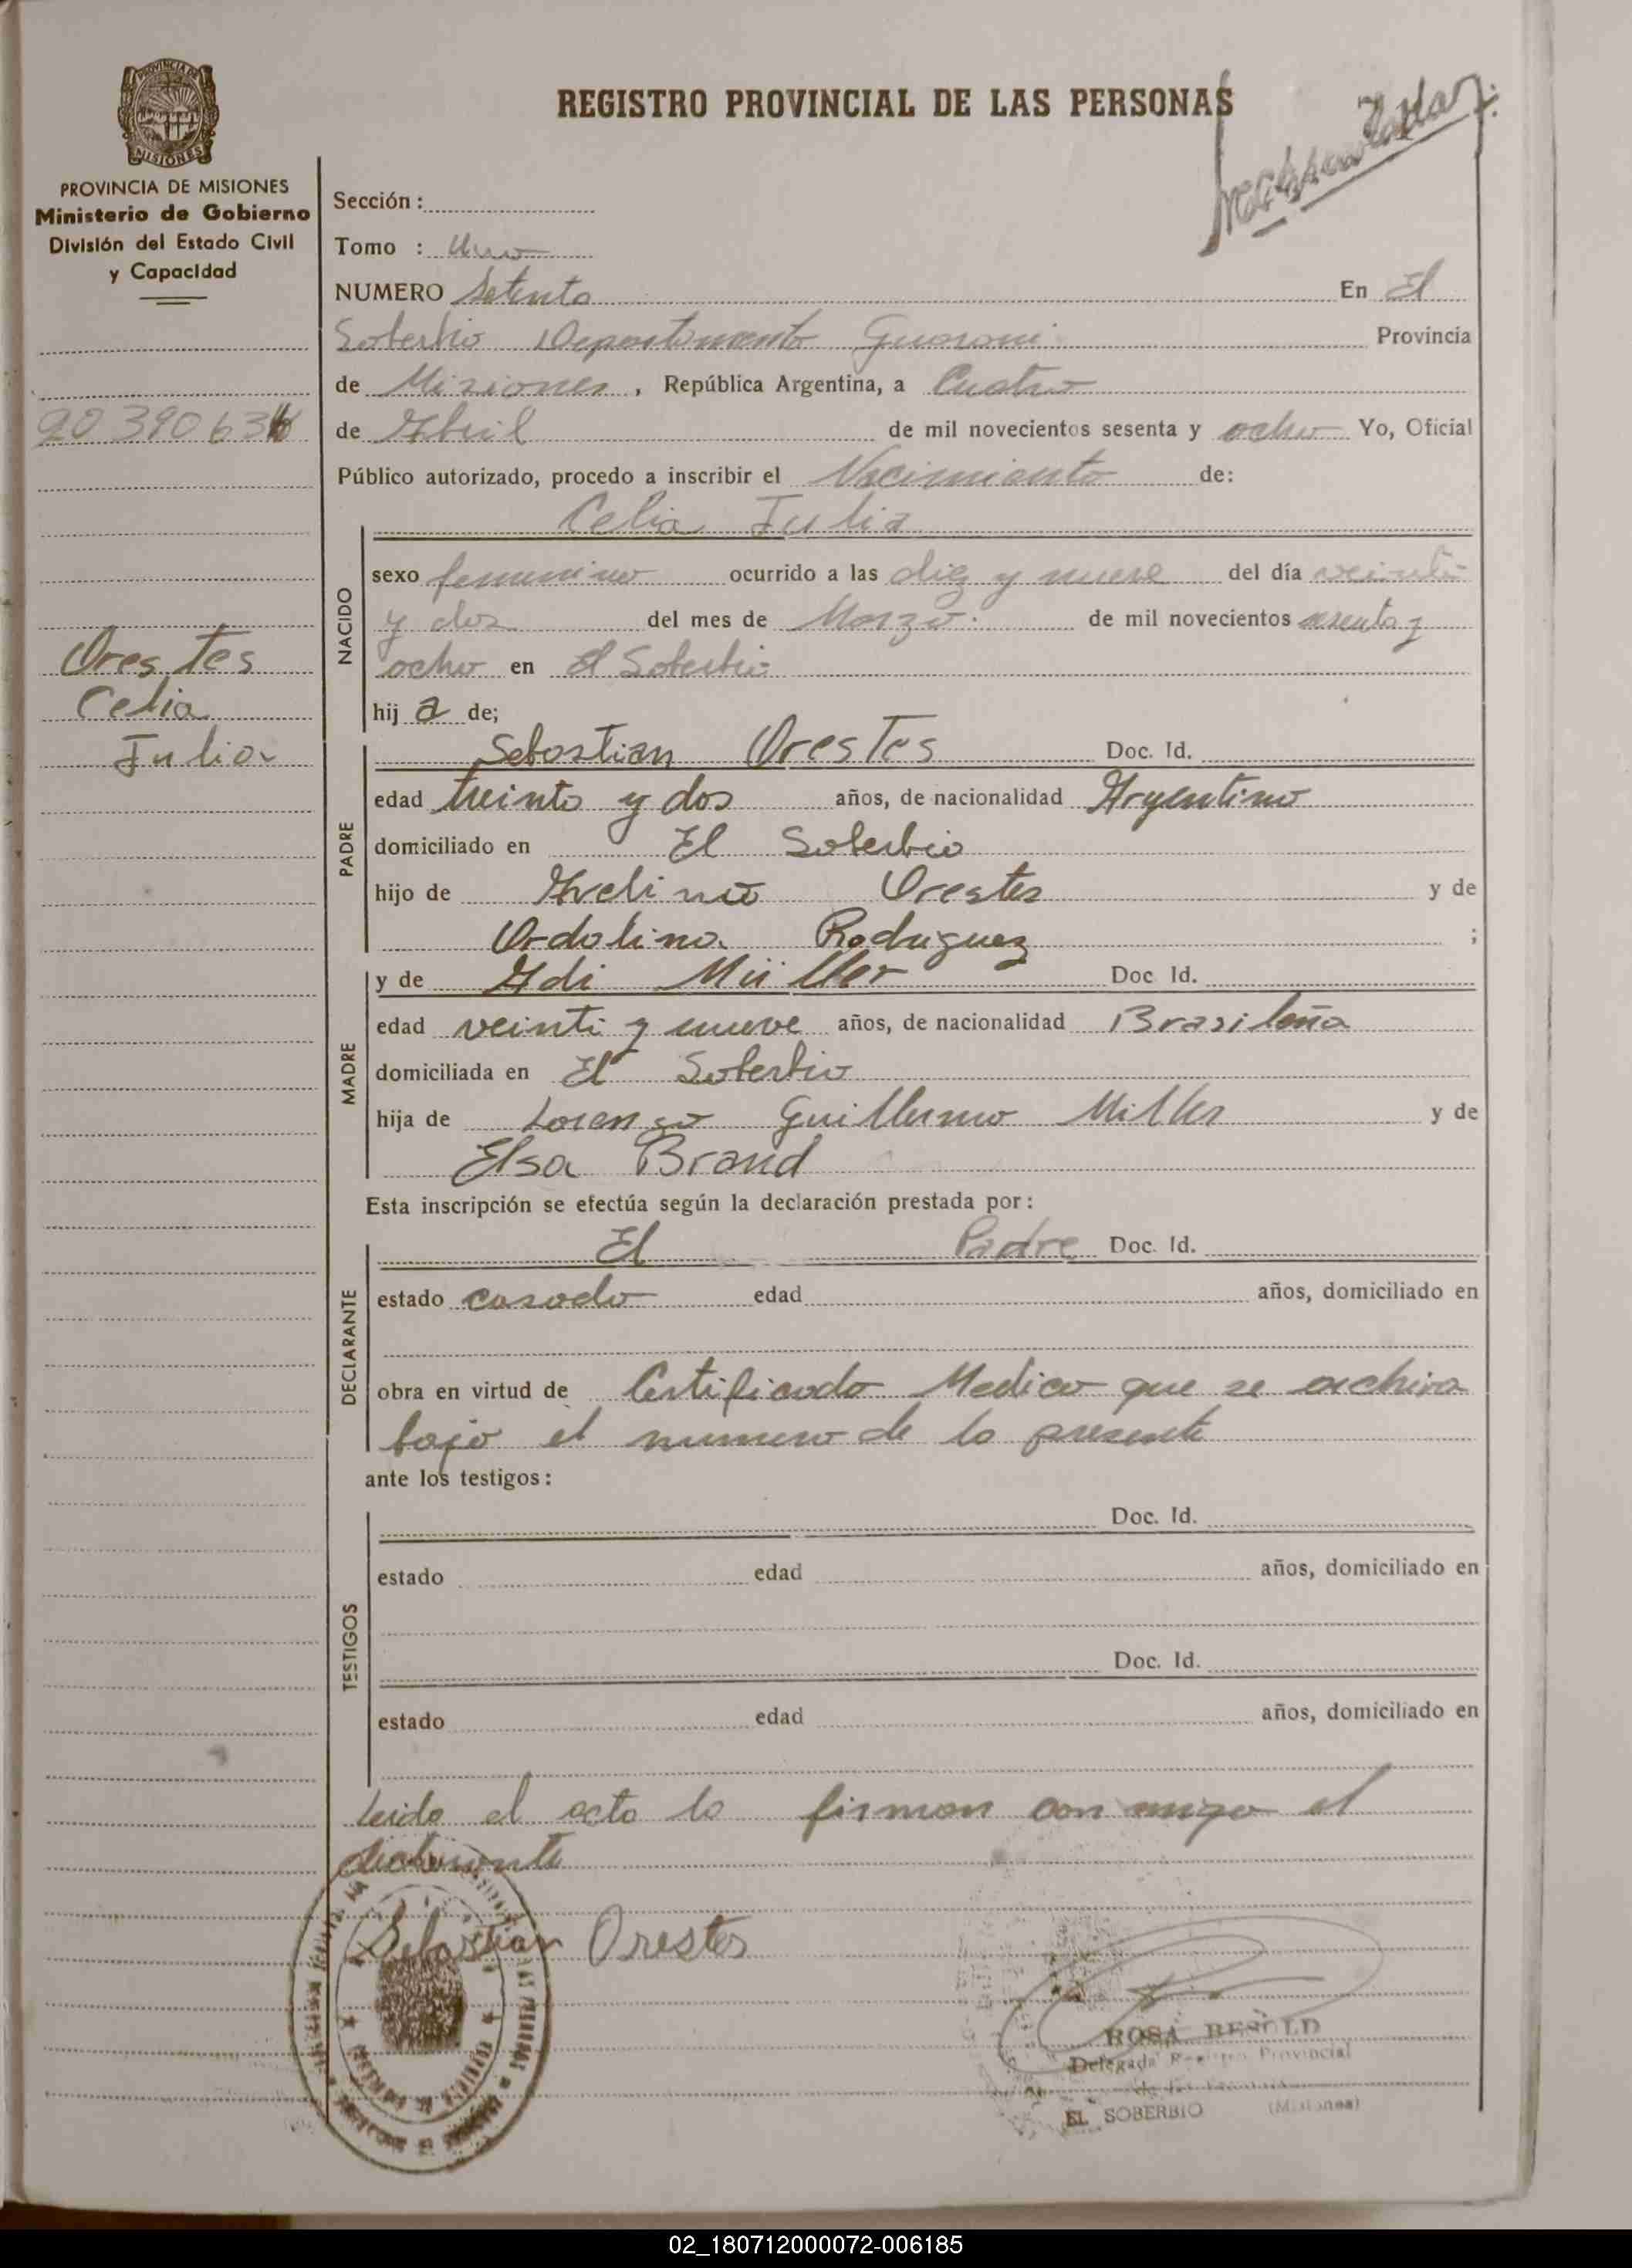 REGISTRO PROVINCIAL DE LAS PERSONAS
PROVINCIA DE
MISIONES
PROVINCIA DE MISIONES
Ministerio de Gobierno
División del Estado Civil
y Capacidad
Sección :
Tomo : Uno
NUMERO Setenta En El
Soberbio Departamento Guarani Provincia
de Misiones, República Argentina, a Cuatro
de Abril de mil novecientos sesenta y ocho Yo, Oficial
Público autorizado, procedo a inscribir el Nacimiento de:
Celia Julia
NACIDO
sexo femenino ocurrido a las diez y nueve del día veinti
y dos del mes de Marzo. de mil novecientos sesenta y
ocho en El Soberbio
hij a de;
Orestes
Celia
Julia
PADRE
Sebastian Orestes Doc. Id.
edad treinta y dos años, de nacionalidad Argentino
domiciliado en El Soberbio
hijo de Avelino Orestes y de
Ordolina Rodriguez ;
MADRE
y de Adi Müller Doc Id.
edad veinti y nueve años, de nacionalidad Brasileña
domiciliada en El Soberbio
hija de Lorenzo Guillermo Miller y de
Elsa Brand
Esta inscripción se efectúa según la declaración prestada por:
DECLARANTE
El Padre Doc. Id.
estado casado edad años, domiciliado en
obra en virtud de Certificado Medico que se archiva
bajo el numero de la presente
ante los testigos:
TESTIGOS
Doc. Id.
estado edad años, domiciliado en
Doc. Id.
estado edad años, domiciliado en
Leida el acta la firman con migo el
declarante
Sebastian Orestes
ROSA BESOLD
Delegada Registro Provincial
de las Personas
EL SOBERBIO (Misiones)
02_180712000072-006185